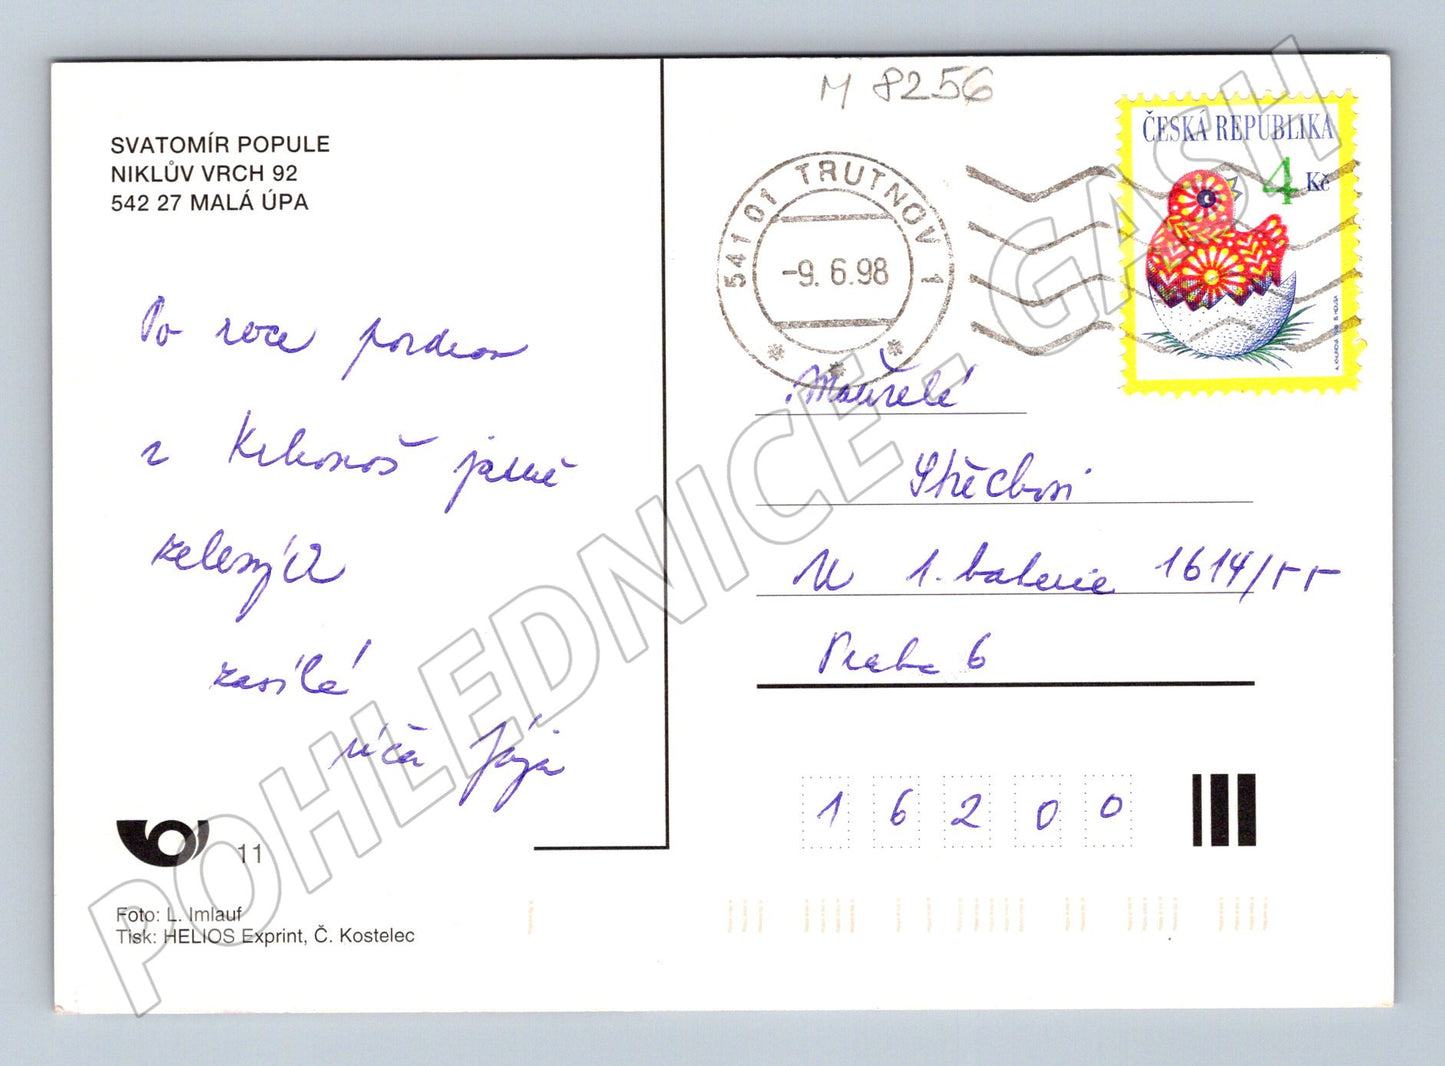 SVATOMÍR POPULE
NIKLŮV VRCH 92
542 27 MALÁ ÚPA
Po roce pozdrav
z Krkonoš jarně
zelených
zasílá
Jája
11
Foto: L. Imlauf
Tisk: HELIOS Exprint, Č. Kostelec
M 8256
541 01 TRUTNOV 1
-9. 6.98
ČESKÁ REPUBLIKA
4 Kč
Manželé
Střechovi
U 1. baterie 1614/55
Praha 6
16200
POHLEDNICE - GASH